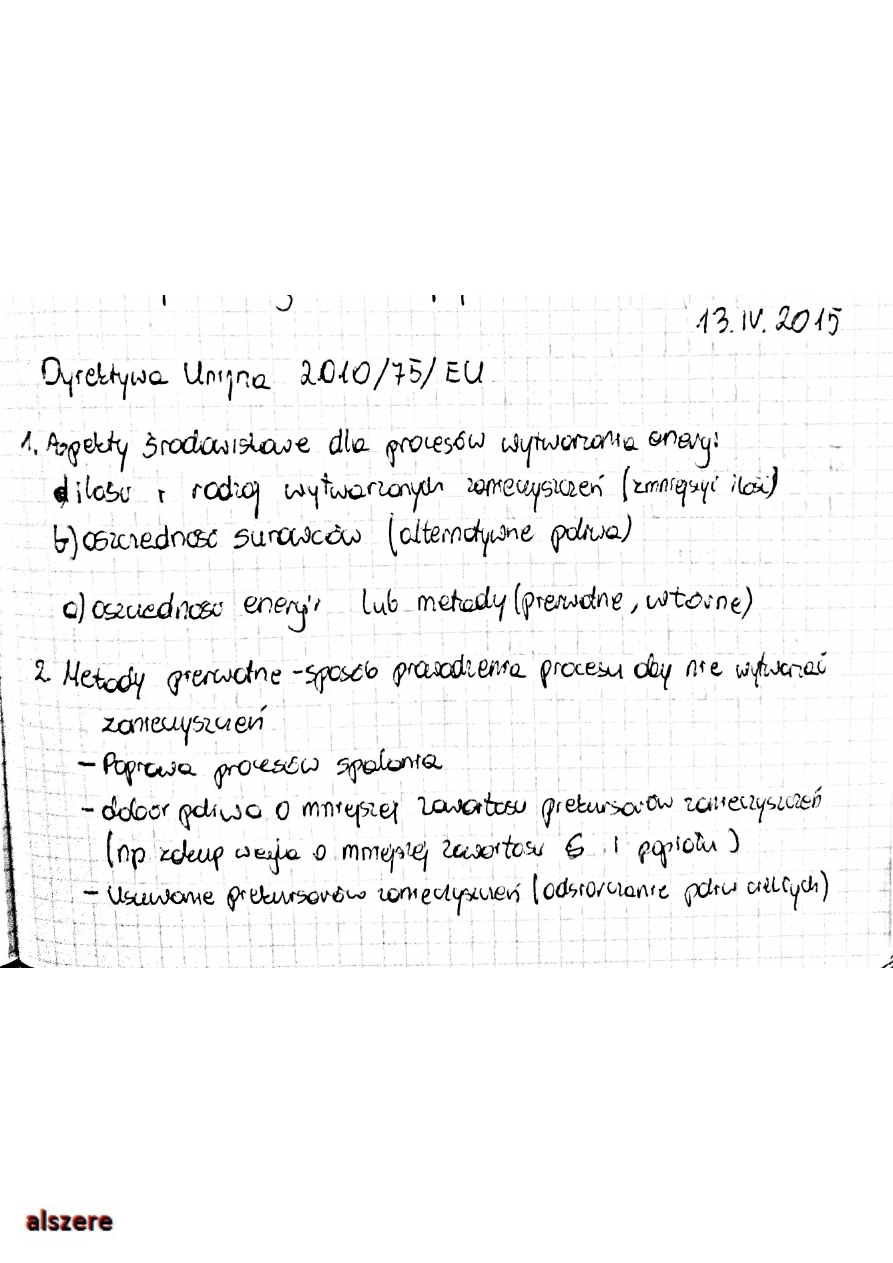 13.IV.2015
Dyrektywa Unijna 2010/75/EU
1. Aspekty środowiskowe dla procesów wytwarzania energii
a) ilość i rodzaj wytwarzonych zanieczyszczeń (zmniejszyć ilość)
b) oszczedność surowców (alternatywne paliwa)
c) oszczedność energii lub metody (pierwotne, wtórne)
2. Metody pierwotne - sposób prowadzenia procesu aby nie wytwarzać
zanieczyszczeń
- Poprawa procesów spalania
- dobór paliwa o mniejszej zawartości prekursorów zanieczyszczeń
(np zakup węgla o mniejszej zawartości S i popiołu)
- Usuwanie prekursorów zanieczyszczeń (odsiarczanie paliw ciekłych)
alszere